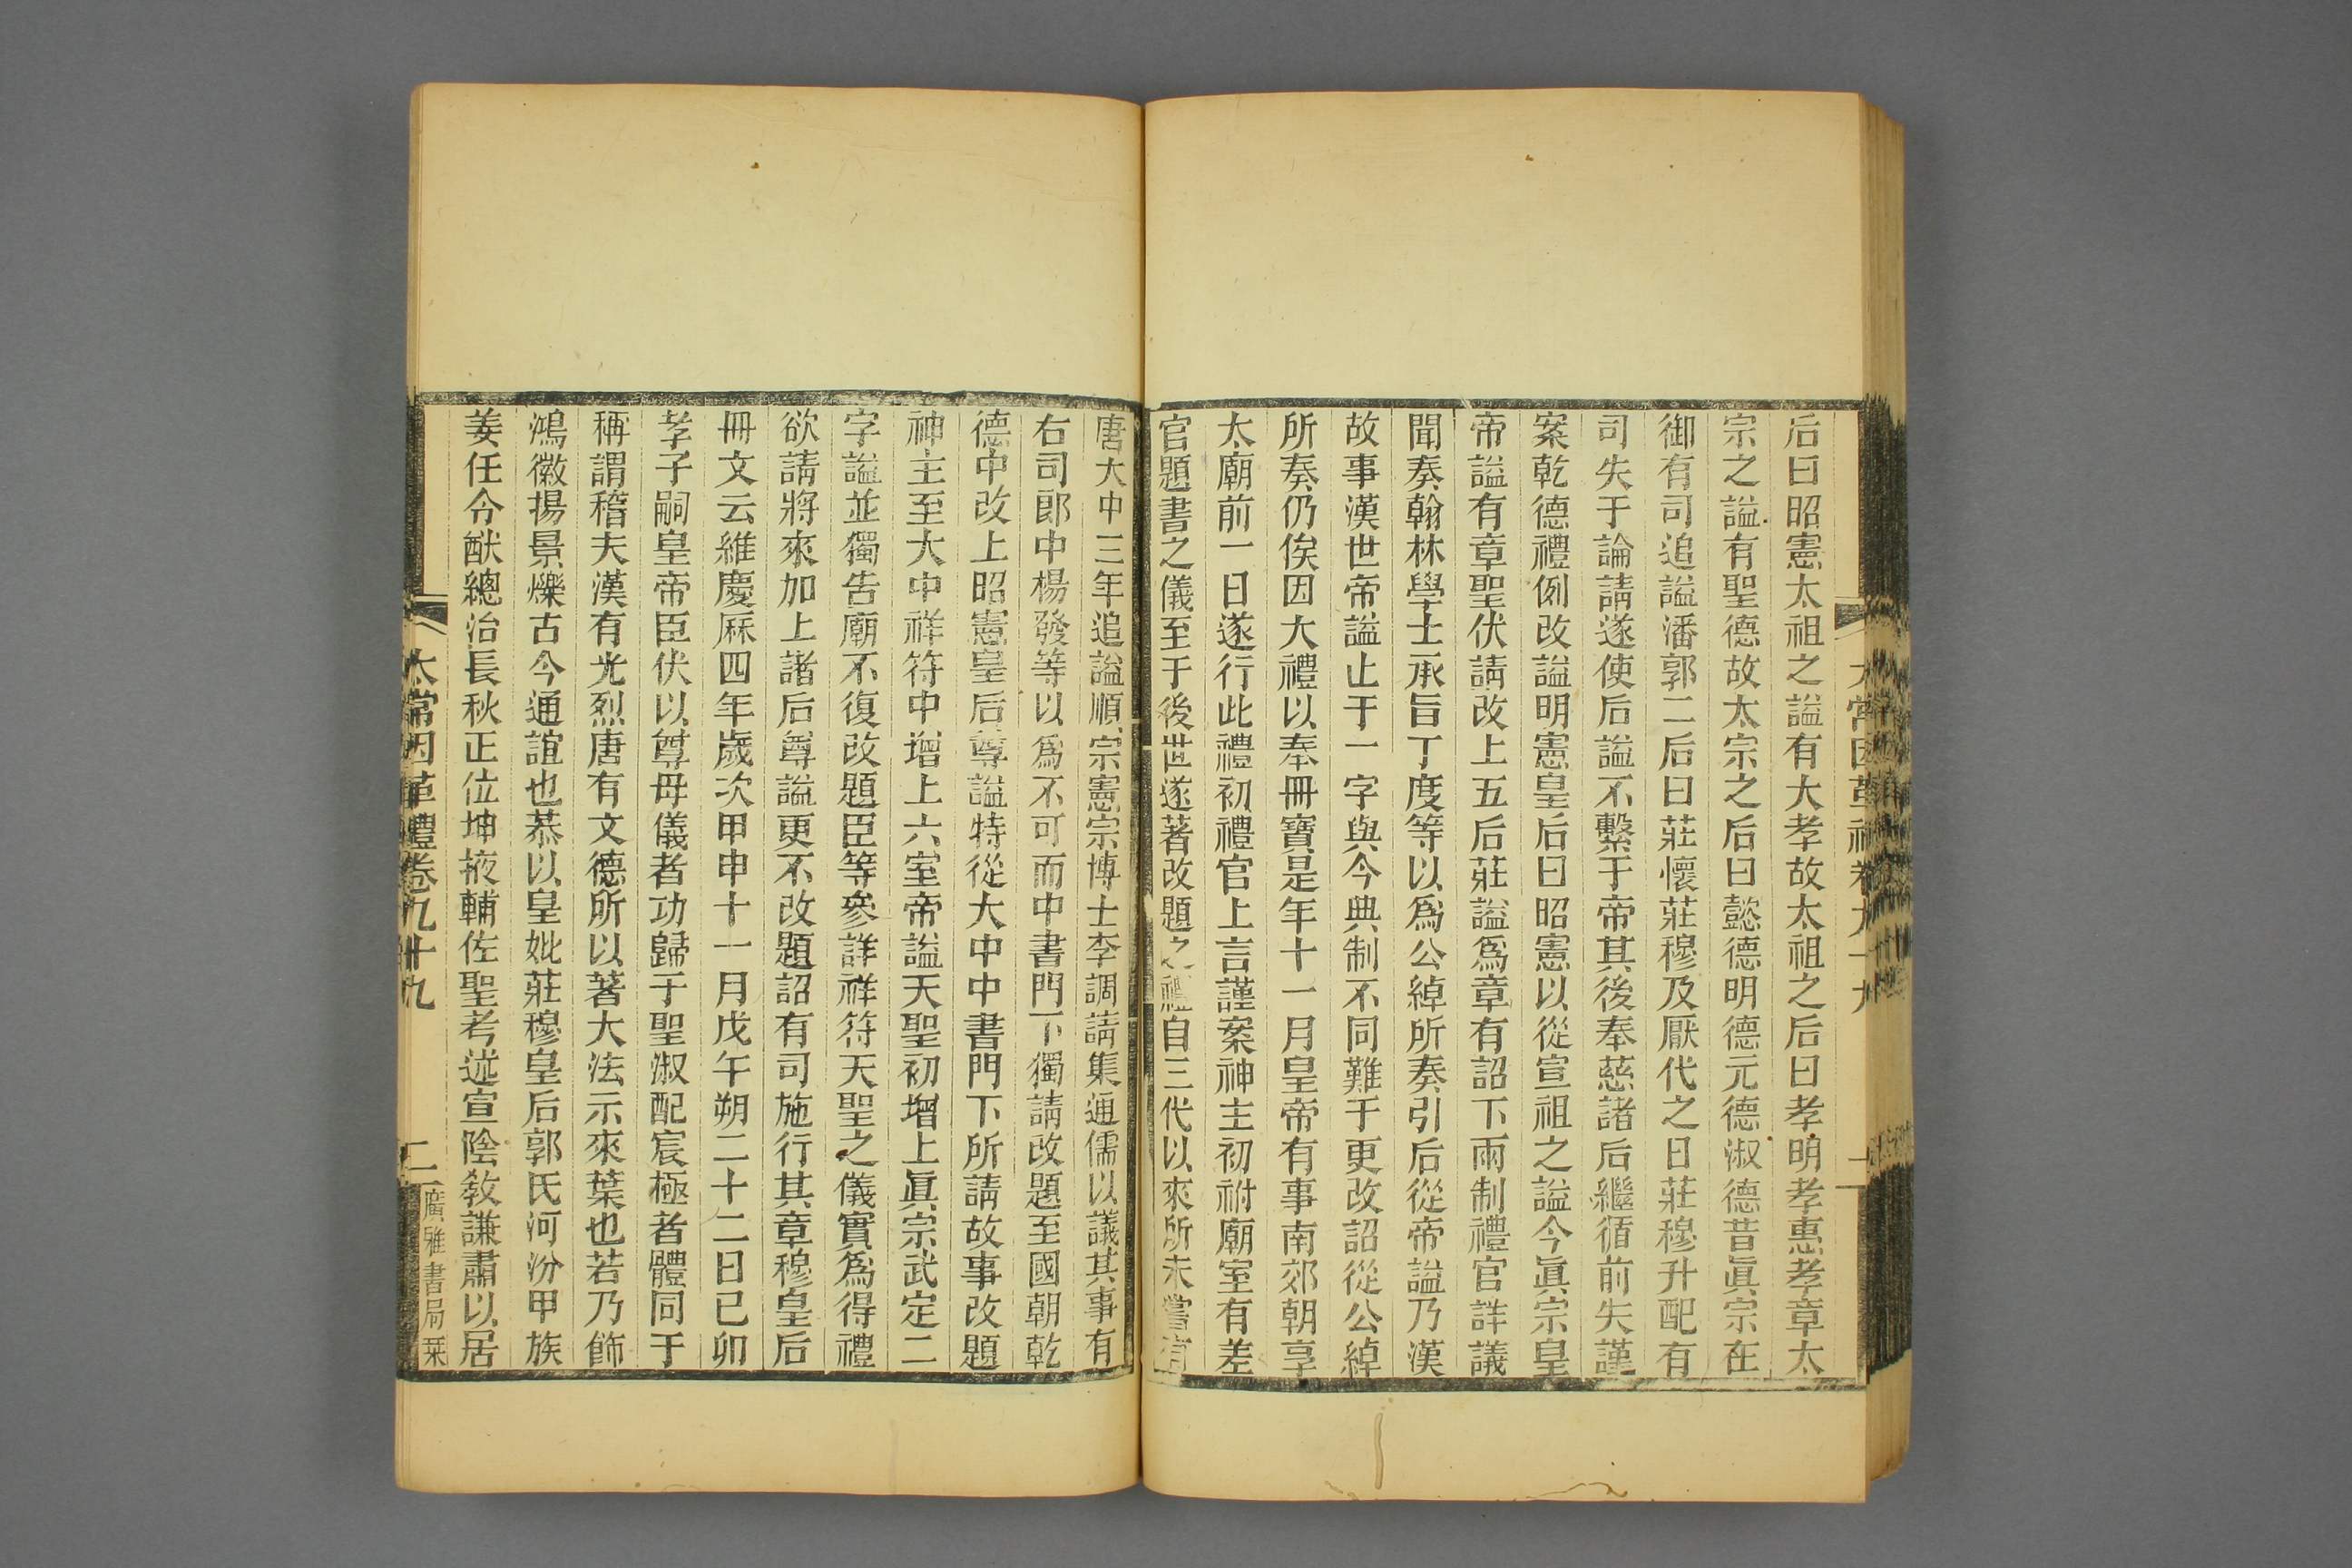 太常因革禮卷九十九
一
后曰昭憲太祖之謚有大孝故太祖之后曰孝明孝惠孝章太
宗之謚有聖德故太宗之后曰懿德明德元德淑德昔眞宗在
御有司追謚潘郭二后曰莊懷莊穆及厭代之日莊穆升配有
司失于論請遂使后謚不繫于帝其後奉慈諸后繼循前失謹
案乾德禮例改謚明憲皇后曰昭憲以從宣祖之謚今眞宗皇
帝謚有章聖伏請改上五后莊謚爲章有詔下兩制禮官詳議
聞奏翰林學士承旨丁度等以爲公綽所奏引后從帝謚乃漢
故事漢世帝謚止于一字與今典制不同難于更改詔從公綽
所奏仍俟因大禮以奉冊寶是年十一月皇帝有事南郊朝享
太廟前一日遂行此禮初禮官上言謹案神主初祔廟室有差
官題書之儀至于後世遂著改題之禮自三代以來所未嘗有
唐大中三年追謚順宗憲宗博士李調請集通儒以議其事有
右司郎中楊發等以爲不可而中書門下獨請改題至國朝乾
德中改上昭憲皇后尊謚特從大中中書門下所請故事改題
神主至大中祥符中增上六室帝謚天聖初增上眞宗武定二
字謚並獨告廟不復改題臣等參詳祥符天聖之儀實爲得禮
欲請將來加上諸后尊謚更不改題詔有司施行其章穆皇后
冊文云維慶厤四年歲次甲申十一月戊午朔二十二日己卯
孝子嗣皇帝臣伏以尊母儀者功歸于聖淑配宸極者體同于
稱謂稽夫漢有光烈唐有文德所以著大法示來葉也若乃飾
鴻徽揚景爍古今通誼也恭以皇妣莊穆皇后郭氏河汾甲族
姜任令猷總治長秋正位坤掖輔佐聖考述宣陰敎謙肅以居
太常因革禮卷九十九
二
廣雅書局栞